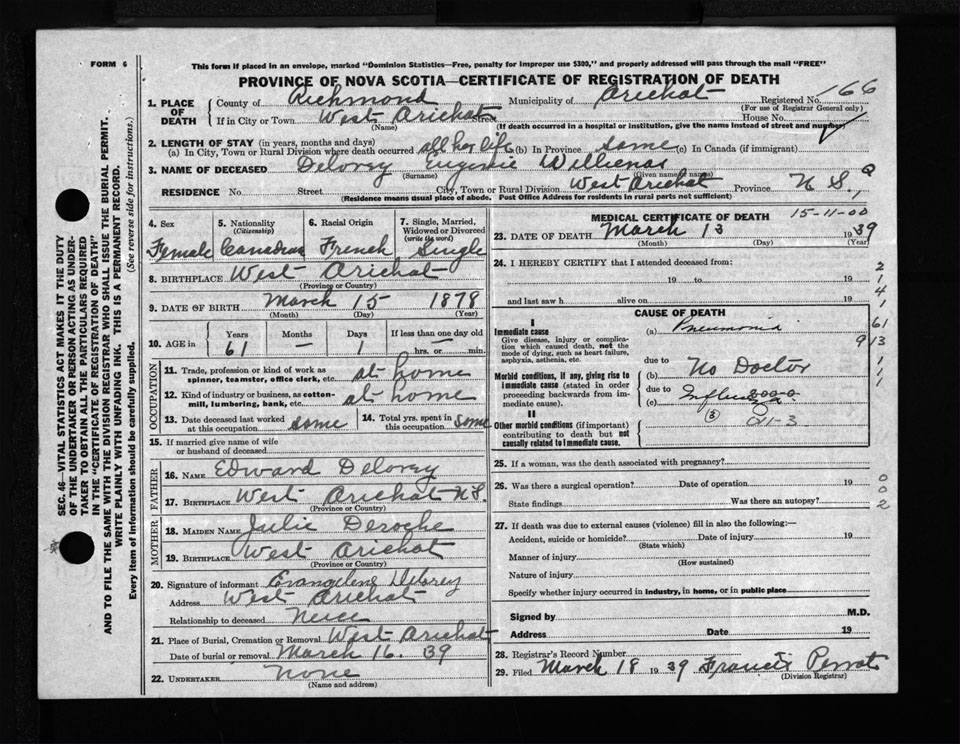 FORM 6
This form if placed in an envelope, marked "Dominion Statistics—Free, penalty for improper use $300," and properly addressed will pass through the mail "FREE"
PROVINCE OF NOVA SCOTIA—CERTIFICATE OF REGISTRATION OF DEATH
SEC. 46—VITAL STATISTICS ACT MAKES IT THE DUTY
OF THE UNDERTAKER OR PERSON ACTING AS UNDER-
TAKER TO OBTAIN ALL THE PARTICULARS REQUIRED
IN THE "CERTIFICATE OF REGISTRATION OF DEATH"
AND TO FILE THE SAME WITH THE DIVISION REGISTRAR WHO SHALL ISSUE THE BURIAL PERMIT.
WRITE PLAINLY WITH UNFADING INK. THIS IS A PERMANENT RECORD.
Every item of information should be carefully supplied. (See reverse side for instructions.)
1. PLACE OF DEATH County of Richmond Municipality of Arichat Registered No. 166
(For use of Registrar General only)
If in City or Town West Arichat Street House No.
(Name) (If death occurred in a hospital or institution, give the name instead of street and number)
2. LENGTH OF STAY (in years, months and days)
(a) In City, Town or Rural Division where death occurred all her life (b) In Province same (c) In Canada (if immigrant)
3. NAME OF DECEASED Delorey Eugenie
(Surname) (Given name or names)
RESIDENCE No. Street City, Town or Rural Division West Arichat Province N S.
(Residence means usual place of abode. Post Office Address for residents in rural parts not sufficient)
4. Sex Female
5. Nationality (Citizenship) Canadian
6. Racial Origin French
7. Single, Married, Widowed or Divorced (write the word) Single
8. BIRTHPLACE West Arichat
(Province or Country)
9. DATE OF BIRTH March 15 1878
(Month) (Day) (Year)
10. AGE in Years 61 Months — Days 1 If less than one day old — hrs. or min.
OCCUPATION
11. Trade, profession or kind of work as spinner, teamster, office clerk, etc. at home
12. Kind of industry or business, as cotton-mill, lumbering, bank, etc. at home
13. Date deceased last worked at this occupation same
14. Total yrs. spent in this occupation same
15. If married give name of wife or husband of deceased
FATHER
16. NAME Edward Delorey
17. BIRTHPLACE West Arichat N S.
(Province or Country)
MOTHER
18. MAIDEN NAME Julie Deroche
19. BIRTHPLACE West Arichat
(Province or Country)
20. Signature of informant Evangeline Delorey
Address West Arichat
Relationship to deceased Niece
21. Place of Burial, Cremation or Removal West Arichat
Date of burial or removal March 16. 39
22. UNDERTAKER none
(Name and address)
MEDICAL CERTIFICATE OF DEATH 15-11-00
23. DATE OF DEATH March 13 1939
(Month) (Day) (Year)
24. I HEREBY CERTIFY that I attended deceased from:
19 to 19
and last saw h alive on 19
CAUSE OF DEATH
I
Immediate cause (a) Pneumonia
Give disease, injury or complication which caused death, not the mode of dying, such as heart failure, asphyxia, asthenia, etc.
due to
Morbid conditions, if any, giving rise to immediate cause (stated in order proceeding backwards from immediate cause). (b) No Doctor
due to
(c)
II
Other morbid conditions (if important) contributing to death but not causally related to immediate cause.
25. If a woman, was the death associated with pregnancy?
26. Was there a surgical operation? Date of operation 19
State findings Was there an autopsy?
27. If death was due to external causes (violence) fill in also the following:—
Accident, suicide or homicide? Date of injury 19
(State which)
Manner of injury
(How sustained)
Nature of injury
Specify whether injury occurred in industry, in home, or in public place
Signed by M.D.
Address Date 19
28. Registrar's Record Number
29. Filed March 18 1939 Francis
(Division Registrar)